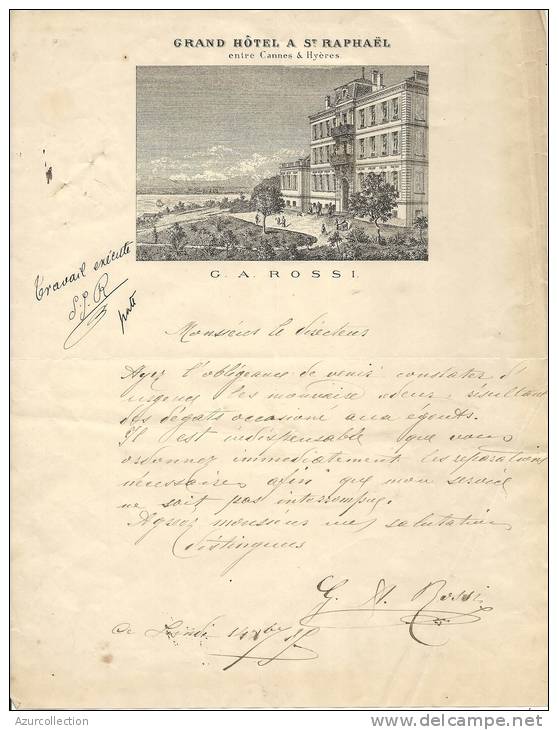 GRAND HÔTEL A ST RAPHAËL
entre Cannes & Hyères.
G. A. ROSSI.
Travail exécuté
S. J. R
Monsieur le directeur
Ayez l'obligeance de venir constater d'
urgence les mauvaise odeur résultant
des dégats occasioné aux égouts.
Il est indispensable que vous
ordonnez immédiatement les réparations
nécessaires afin que mon service
ne soit pas interrompu.
Agréez monsieur mes salutation
distingués
G. A. Rossi
Ce Lundi 14
Azurcollection
www.delcampe.net